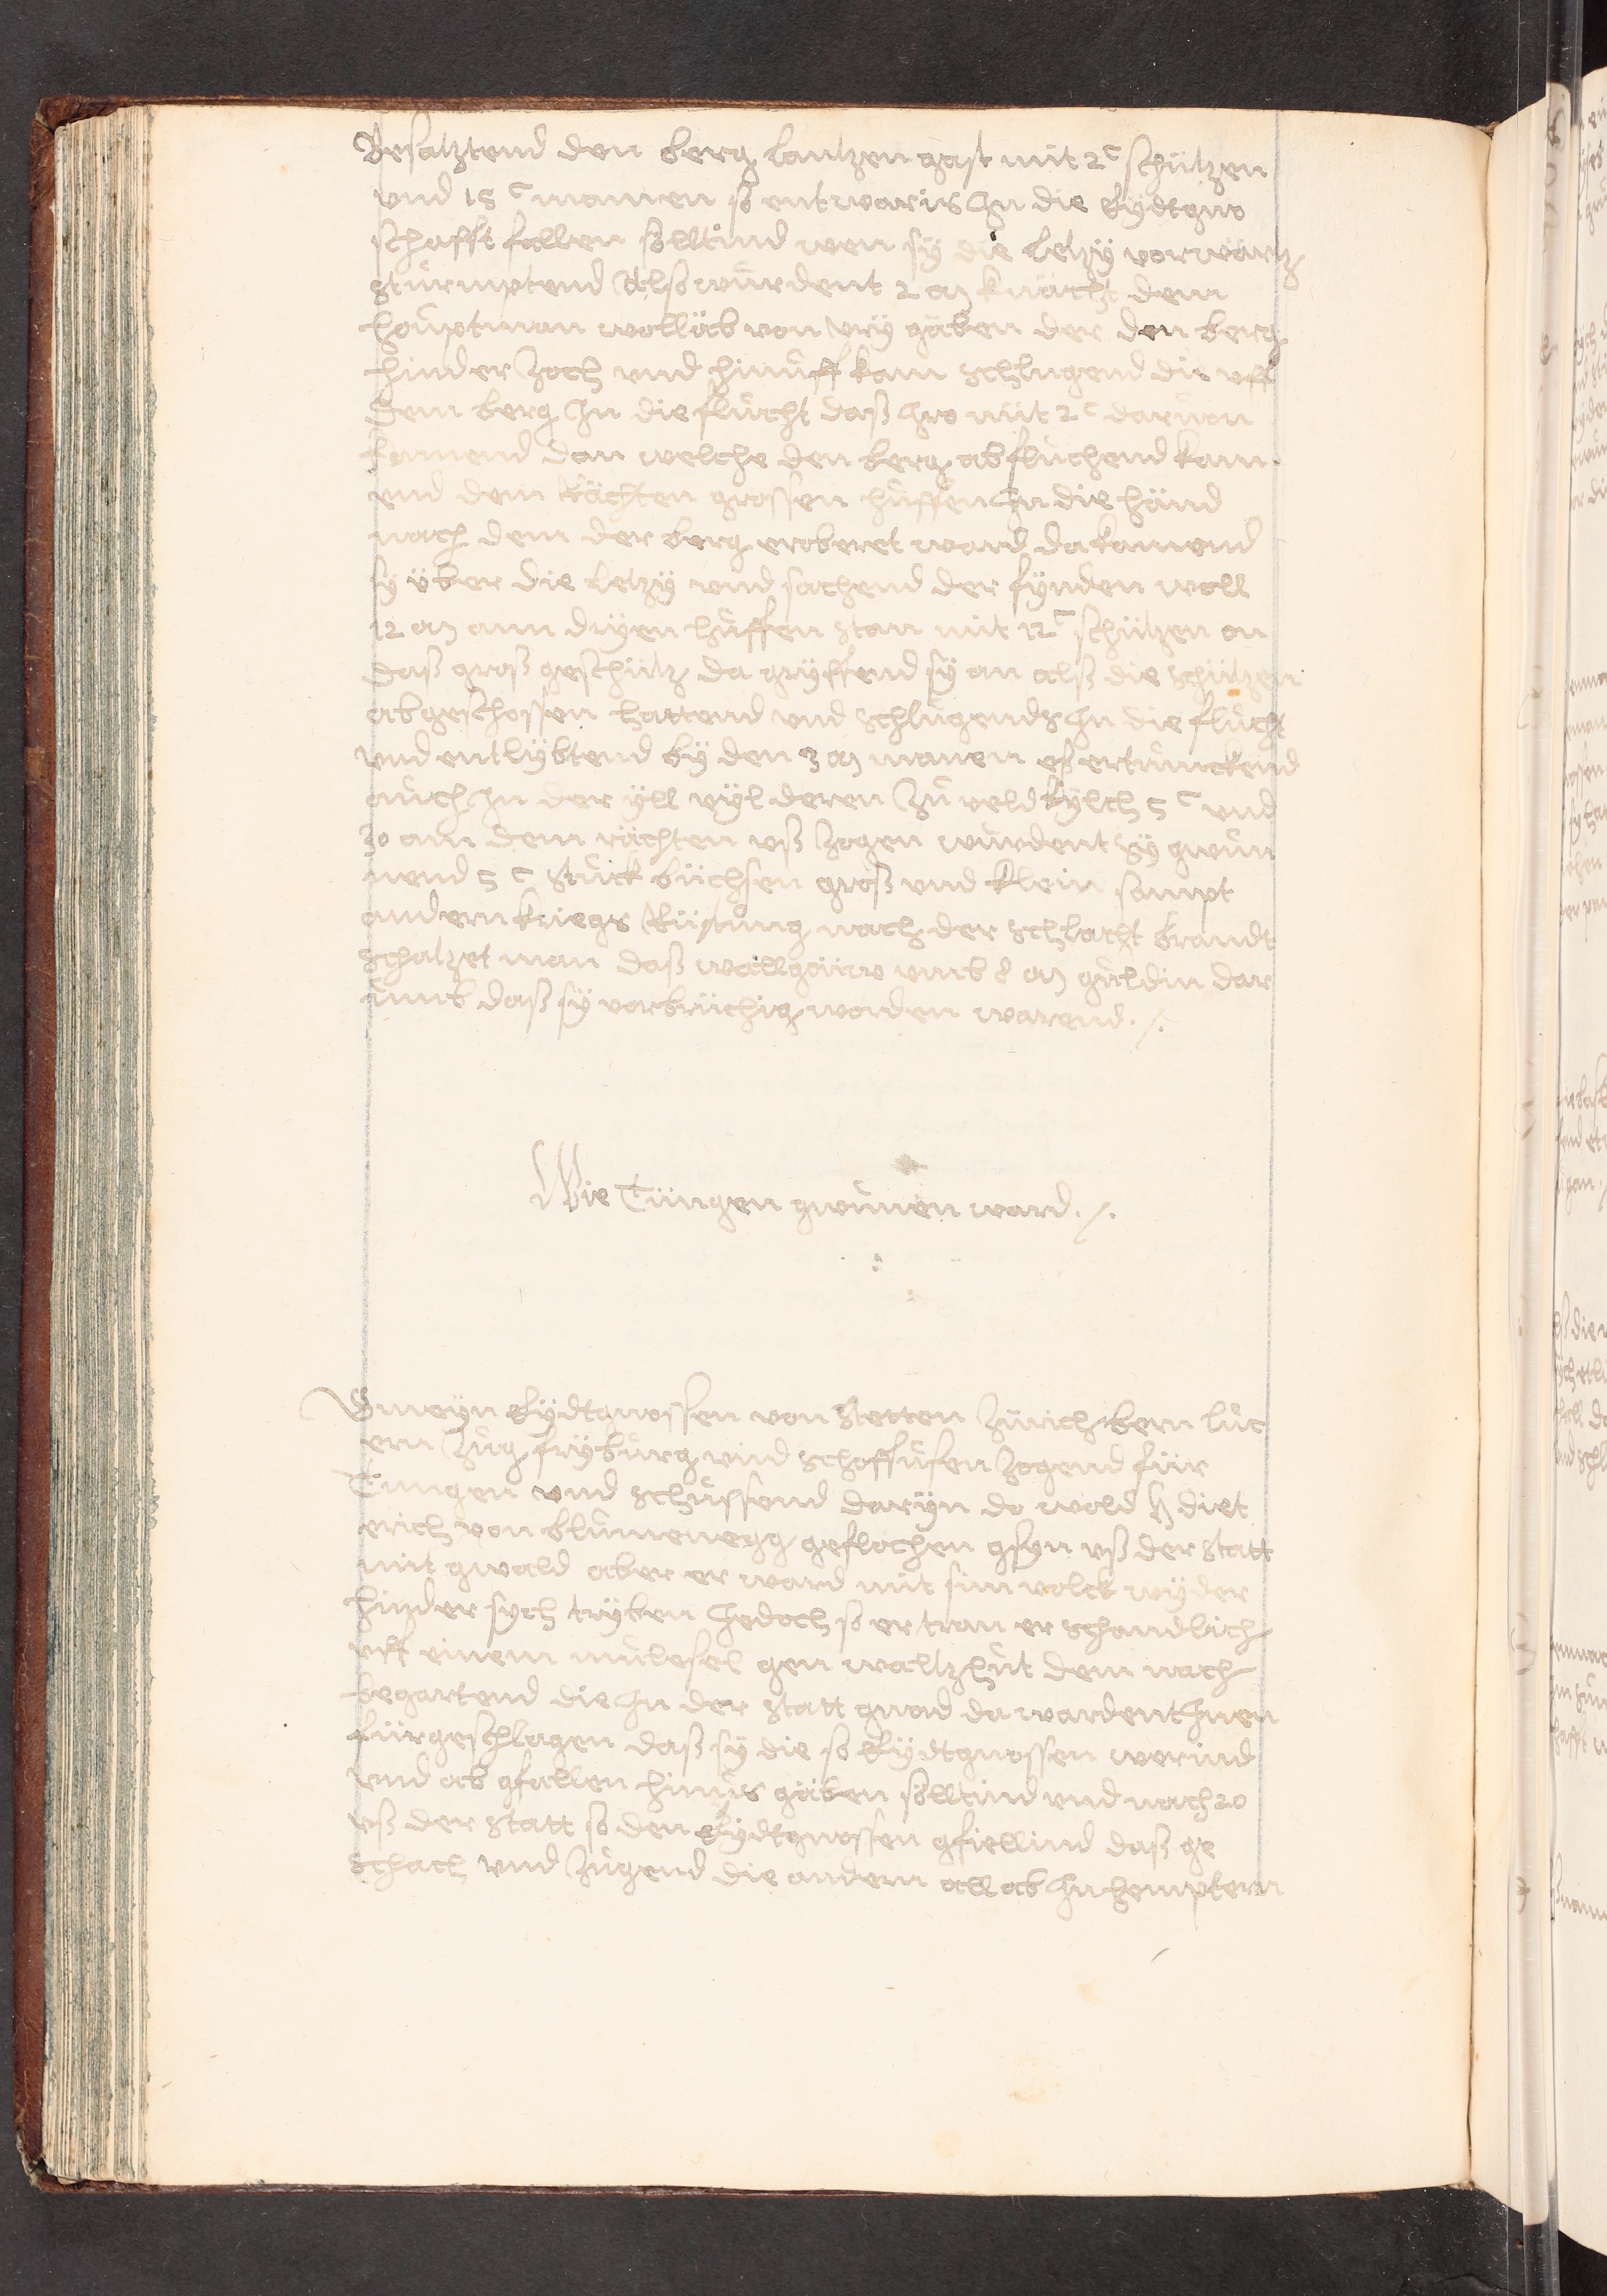 Besatztend den berg lantzengast mit 2ᶜ schützen
und 15 ᶜ manen so entwaris Jn die Eydtgno
schafft fallen sölltind wen sÿ die letzÿ vorwärtz
stürmptend Alls würdent 2 M knächt dem
houptman wolläb von urÿ gäben der den berg
hinder zoch und hinuff kam schlugend die uff
dem berg Jn die flucht das Jro nüt 2ᶜ darvon
kamend dan welche den berg ab fluchend kam
end dem Rächten grossen huffen Jn die händ
nach dem der berg eroberet ward da kamend
sÿ über die letzÿ und sachend der fÿnden woll
12 M ann drÿen huffen stan mit 12ᶜ schützen on
das gros geschütz da grÿffend sÿ an alls die schützen
abgeschossen hattend und schlugends Jn die flucht
und entlÿbtend bÿ den 3 M manen es ertrunckend
auch Jn der ÿll vÿl deren zu veldkÿlch 5 ᶜ und
30 ann dem rächten uß zogen wurdent sÿ gwun
nend 5 ᶜ stuck büchsen gros und klein sampt
andern kriegs Rüstung nach der schlacht brandt
schatzet man das wallgäüw umb 8 M guldin dar
umb das sÿ vorbrüchig worden warend ./.
Wie Tüngen gwunen ward ./.
Gmeÿn Eÿdtgnossen von stetten zürich bern luc
ern zug frÿburg und schaffusen zogend für
Tüngen und schussend darÿn do wold h diet
erich von blumenegg geflochen gsÿn uß der statt
mit gwald aber er ward mit sim volck wÿder
hinder sych trÿben Jedoch so ertran er schandlich
uff einem mulesel gen waltzhut dem nach
begartend die Jn der statt gnad da wardent Jnen
fürgeschlagen das sÿ die so Eÿdtgnossen werind
und ab gfallen hinus gäben sölltind und nach 20
uß der statt so den Eÿdtgnossen gfiellind das ge
schach und zugend die andern all ab Jn hempteren